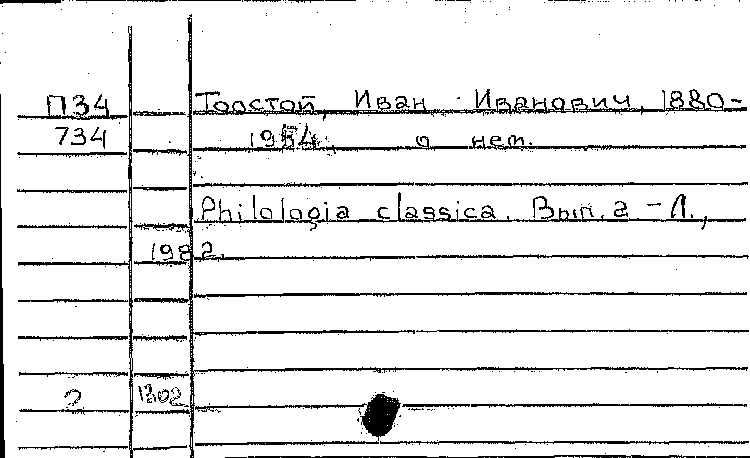 П34 Толстой, Иван Иванович, 1880-
734 1954, о нем.
Philologia classica. Вып. 2 - Л.,
1982.
2 1302